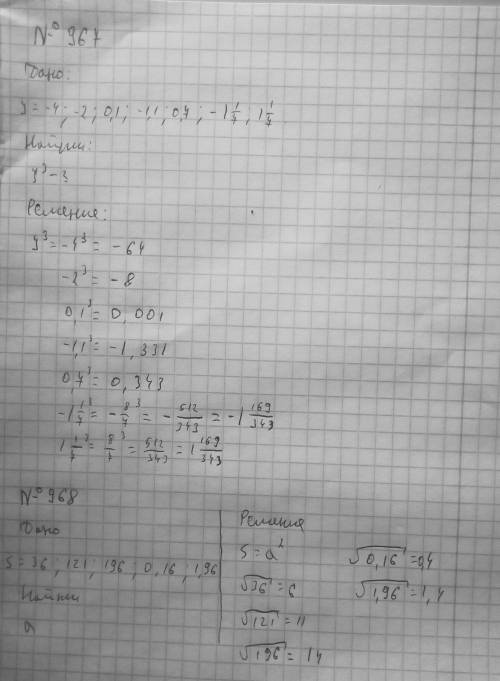 № 967
Дано:
y = -4; -2; 0,1; -1,1; 0,7; -1 1/7; 1 1/7
Найти:
y³ - 3
Решение:
y³ = -4³ = -64
-2³ = -8
0,1³ = 0,001
-1,1³ = -1,331
0,7³ = 0,343
-1 1/7³ = -8/7³ = -512/343 = -1 169/343
1 1/7³ = 8/7³ = 512/343 = 1 169/343
№ 968
Дано
S = 36; 121; 196; 0,16; 1,96
Найти
a
Решения
S = a²
√36 = 6
√121 = 11
√196 = 14
√0,16 = 0,4
√1,96 = 1,4